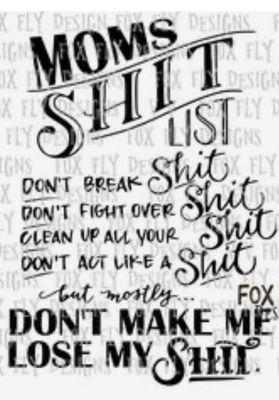 MOMS
SHIT
LIST
DON'T BREAK Shit
DON'T FIGHT OVER Shit
CLEAN UP ALL YOUR Shit
DON'T ACT LIKE A Shit
but mostly...
FOX
DON'T MAKE ME
LOSE MY SHIT.
FOX FLY DESIGNS